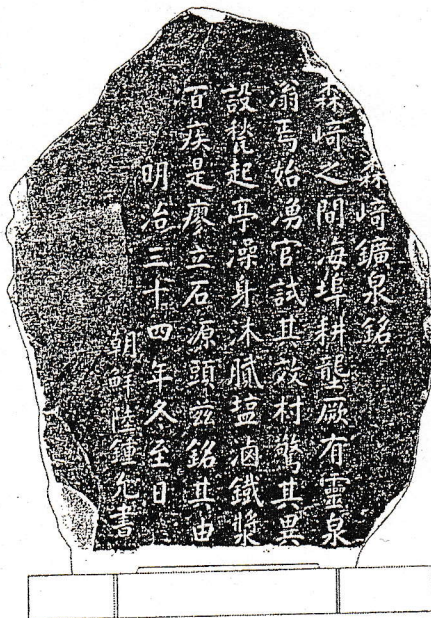 森崎鑛泉銘
森崎之間海埠耕墾厥有靈泉
滃焉始湧官試其效村驚其異
設甃起亭澡身沐膩塩滷鐵漿
百疾是廖立石源頭茲銘其由
明治三十四年冬至日
朝鮮陸鍾允書